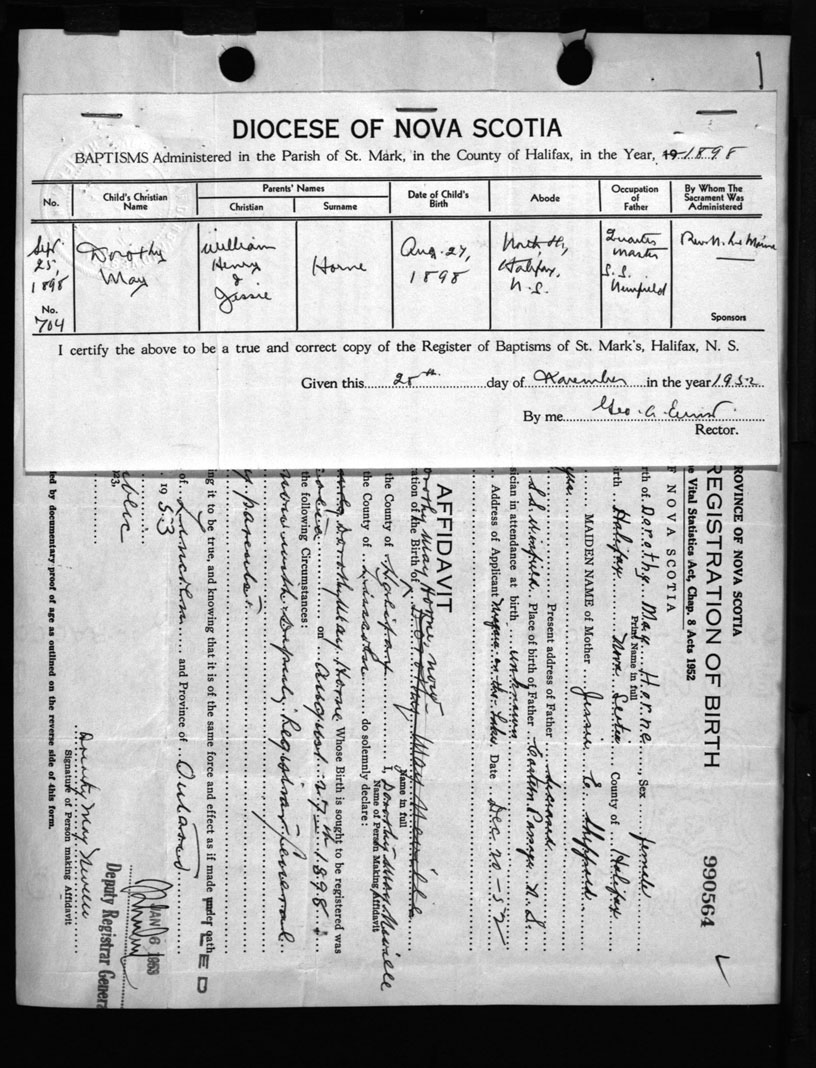 DIOCESE OF NOVA SCOTIA
BAPTISMS Administered in the Parish of St. Mark, in the County of Halifax, in the Year, 19 1898
No.
Child's Christian Name
Parents' Names
Christian
Surname
Date of Child's Birth
Abode
Occupation of Father
By Whom The Sacrament Was Administered
Sept 25, 1898
No. 704
Dorothy May
William Henry & Jessie
Horne
Aug. 27, 1898
Halifax, N.S.
Quarter Master S.S.
Rev. N. Le Moine
Sponsors
I certify the above to be a true and correct copy of the Register of Baptisms of St. Mark's, Halifax, N. S.
Given this 20th day of November in the year 1952
By me Geo. A. Ernst
Rector.
PROVINCE OF NOVA SCOTIA
REGISTRATION OF BIRTH
990564
e Vital Statistics Act, Chap. 8 Acts 1952
F NOVA SCOTIA
rth of Dorothy May Horne, Sex female
Print Name in full
irth Halifax Nova Scotia County of Halifax
MAIDEN NAME of Mother Jessie E. Sheffield
Present address of Father deceased
S.S. Minfield Place of birth of Father Eastern Passage N.S.
sician in attendance at birth unknown
Address of Applicant Niagara on the Lake, Date Dec. 20-52
AFFIDAVIT
orothy May Horne now
ration of the Birth of Dorothy May Neville
Name in full
the County of Halifax I, Dorothy May Neville
Name of Person Making Affidavit
the County of Lincoln do solemnly declare:
Dorothy May Horne Whose Birth is sought to be registered was
on August 27th 1898 &
the following Circumstances:
now with Deputy Registrar General
y parents.
ing it to be true, and knowing that it is of the same force and effect as if made under oath
of Lincoln and Province of Ontario
1953
mber
923.
Dorothy May Neville
Signature of Person making Affidavit
led by documentary proof of age as outlined on the reverse side of this form.
LED
JAN 6 1953
Deputy Registrar Genera